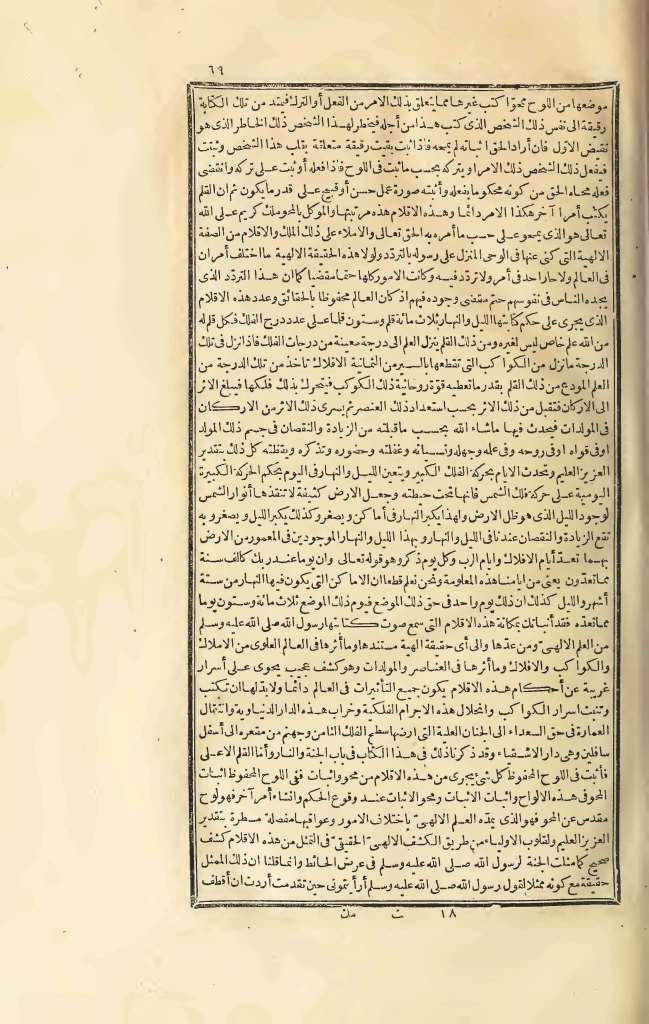 ٦٩
موضعها من اللوح محوا كتب غيرها مما يتعلق بذلك الامر من الفعل أو الترك فيمتد من تلك الكتابة
رقيقة الى نفس ذلك الشخص الذى كتب هذا من أجله فيخطر لهذا الشخص ذلك الخاطر الذى هو
نقيض الاوّل فان أراد الحق اثباته لم يمحه فاذا ثبت بقيت رقيقة متعلقة بقلب هذا الشخص وثبتت
فيفعل ذلك الشخص ذلك الامر أو يتركه بحسب ما ثبت فى اللوح فاذا فعله أو ثبت على تركه وانقضى
فعله محاه الحق من كونه محكوما بفعله وأثبته صورة عمل حسن أو قبيح على قدر ما يكون ثم ان القلم
يكتب أمرا آخر هكذا الامر دائما وهذه الاقلام هذه مرتبتها والموكل بالمحو ملك كريم على الله
تعالى هو الذى يمحو على حسب ما أمره به الحق تعالى والاملاء على ذلك الملك والاقلام من الصفة
الالهية التى كنى عنها فى الوحى المنزل على رسوله بالتردد ولولا هذه الحقيقة الالهية ما اختلف أمران
فى العالم ولا حار احد فى أمر ولا تردد فيه وكانت الامور كلها حتما مقضيا كما ان هذا التردد الذى
يجده الناس فى نفوسهم حتم مقضى وجوده فيهم اذ كان العالم محفوظا بالحقائق وعدد هذه الاقلام
الذى يجرى على حكم كتابتها الليل والنهار ثلاث مائة قلم وستون قلما على عدد درج الفلك فكل قلم له
من الله علم خاص ليس لغيره ومن ذلك القلم ينزل العلم الى درجة معينة من درجات الفلك فاذا نزل فى تلك
الدرجة ما نزل من الكواكب التى تقطعها بالسير من الثمانية الافلاك تأخذ من تلك الدرجة من
العلم المودع من ذلك القلم بقدر ما تعطيه قوّة روحانية ذلك الكوكب فيتحرك بذلك فلكها فيبلغ الاثر
الى الاركان فتقبل من ذلك الاثر بحسب استعداد ذلك العنصر ثم يسرى ذلك الاثر من الاركان
فى المولدات فيحدث فيها ما شاء الله بحسب ما قبلته من الزيادة والنقصان فى جسم ذلك المولد
او فى قواه او فى روحه وفى علمه وجهله ونسيانه وغفلته وحضوره وتذكره ويقظته كل ذلك بتقدير
العزيز العليم وتحدث الايام بحركة الفلك الكبير ويتعين الليل والنهار فى اليوم بحكم الحركة الكبيرة
اليومية على حركة فلك الشمس فانها تحت حيطته وجعل الارض كثيفة لا تنفذها أنوار الشمس
لوجود الليل الذى هو ظل الارض ولهذا يكبر النهار فى أماكن ويصغر وكذلك يكبر الليل ويصغر وبه
تقع الزيادة والنقصان عندنا فى الليل والنهار وبهذا الليل والنهار الموجودين فى المعمور من الارض
بهما تعدّ أيام الافلاك وايام الرب وكل يوم ذكر وهو قوله تعالى وان يوما عند ربك كالف سنة
مما تعدون يعنى من ايامنا هذه المعلومة ونحن نعلم قطعا ان الاماكن التى يكون فيها النهار من ستة
أشهر والليل كذلك ان ذلك يوم واحد فى حق ذلك الموضع فيوم ذلك الموضع ثلاث مائة وستون يوما
مما نعدّه فقد أنبأتك بمكانة هذه الاقلام التى سمع صوت كتابتها رسول الله صلى الله عليه وسلم
من العلم الالهىّ ومن عدّها والى أى حقيقة الهية مستندها وما أثرها فى العالم العلوى من الاملاك
والكواكب والافلاك وما أثرها فى العناصر والمولدات وهو كشف عجيب يحوى على أسرار
غريبة عن أحكام هذه الاقلام يكون جميع التأثيرات فى العالم دائما ولا بد لها ان تكتب
وتثبت اسرار الكواكب وانحلال هذه الاجرام الفلكية وخراب هذه الدار الدنياوية وانتقال
العمارة فى حق السعداء الى الجنان العلية التى ارضها سطح الفلك الثامن وجهنم من مقعره الى أسفل
سافلين وهى دار الاشقياء وقد ذكرنا ذلك فى هذا الكتاب فى باب الجنة والنار وأما القلم الاعلى
فأثبت فى اللوح المحفوظ كل شئ يجرى من هذه الاقلام من محو واثبات ففى اللوح المحفوظ اثبات
المحو فى هذه الالواح واثبات الاثبات ومحو الاثبات عند وقوع الحكم وانشاء أمر آخر فهو لوح
مقدس عن المحو فهو الذى يمدّه العلم الالهىّ باختلاف الامور وعواقبها مفصلة مسطرة بتقدير
العزيز العليم ولقلوب الاولياء من طريق الكشف الالهىّ الحقيقىّ فى التمثل من هذه الاقلام كشف
صحيح كما مثلت الجنة لرسول الله صلى الله عليه وسلم فى عرض الحائط وانما قلنا ان ذلك الممثل
حقيقة مع كونه ممثلا لقول رسول الله صلى الله عليه وسلم أرأيتمونى حين تقدمت أردت ان أقطف
١٨ ث مك